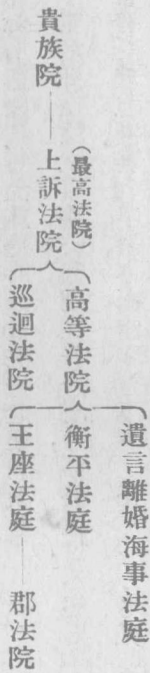 貴族院
上訴法院
(最高法院)
高等法院
巡迴法院
遺言離婚海事法庭
衡平法庭
王座法庭
郡法院